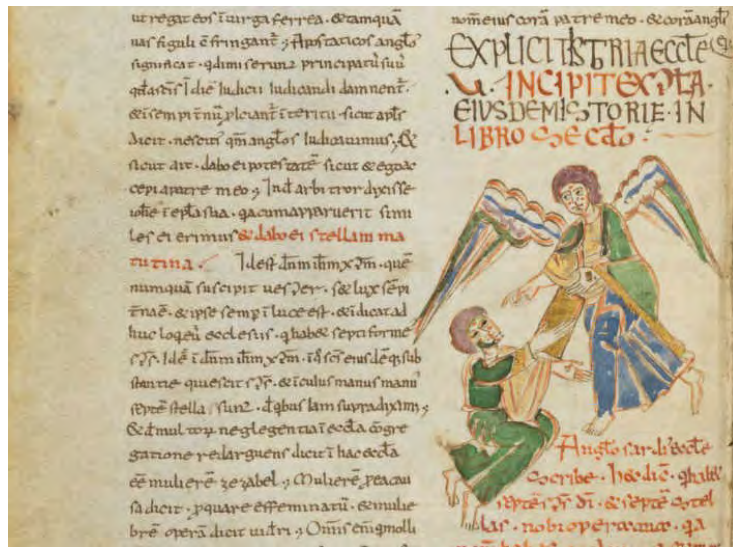 ut regat eos ī uirga ferrea · & tamquā
uas figuli c̄fringant᷑ ; Apostaticos angl̄os
significat · qđ dimiserunt principatū suū
in die Iudicii Iudicandi damnent᷑ ·
sicut apl̄s
dicit · nescitis qm̄ angl̄os Iudicauimus ; &
sicut ait · dabo ei potestatē sicut & ego ac
cepi a patre meo ; Ind̄ arbitror dixisse
iohē ī epl̄a sua · q̄a cum apparuerit simi
les ei erimus & dabo ei stellam ma
tutina · Id est dn̄m ihm̄ xp̄m · quē
numquā suscipit uesper · sed lux sēpi
t̄na ē · & ipse semp̄ ī luce est · & ī dicat ad
huc loqēū ecclesiis · q̄ habē septiformē
sp̄s · Id ē ī dn̄m ihm̄ xp̄m · ī q̄ sub
stantie quiescit sp̄s · & ī cuius manus manu
septē stella sunt · d̄ qbus Iam supra diximus ;
& d̄ multorū neglegentia ī eccl̄a cōgre
gatione redarguens dicit ī hac eccl̄a
eē mulierē zezabel ; Mulierē p̄ea cau
sa dicit · p̄quare effeminatū · & mulie
brē operā dicit uidr̄i ; Omīs enī q molli
nom̄ eius corā patre meo · & corā angl̄is
EXPLICIT ISTORIA ECCLE
·U· INCIPIT EXPLA·
EIUSDEM ISTORIE · IN
LIBRO SECDO :
Anglo sardb' eccl̄e
scribe · hec dic̄ · q̄ habē
septē sp̄s dī · & septē stel
las · nobi opera tua · q̄a